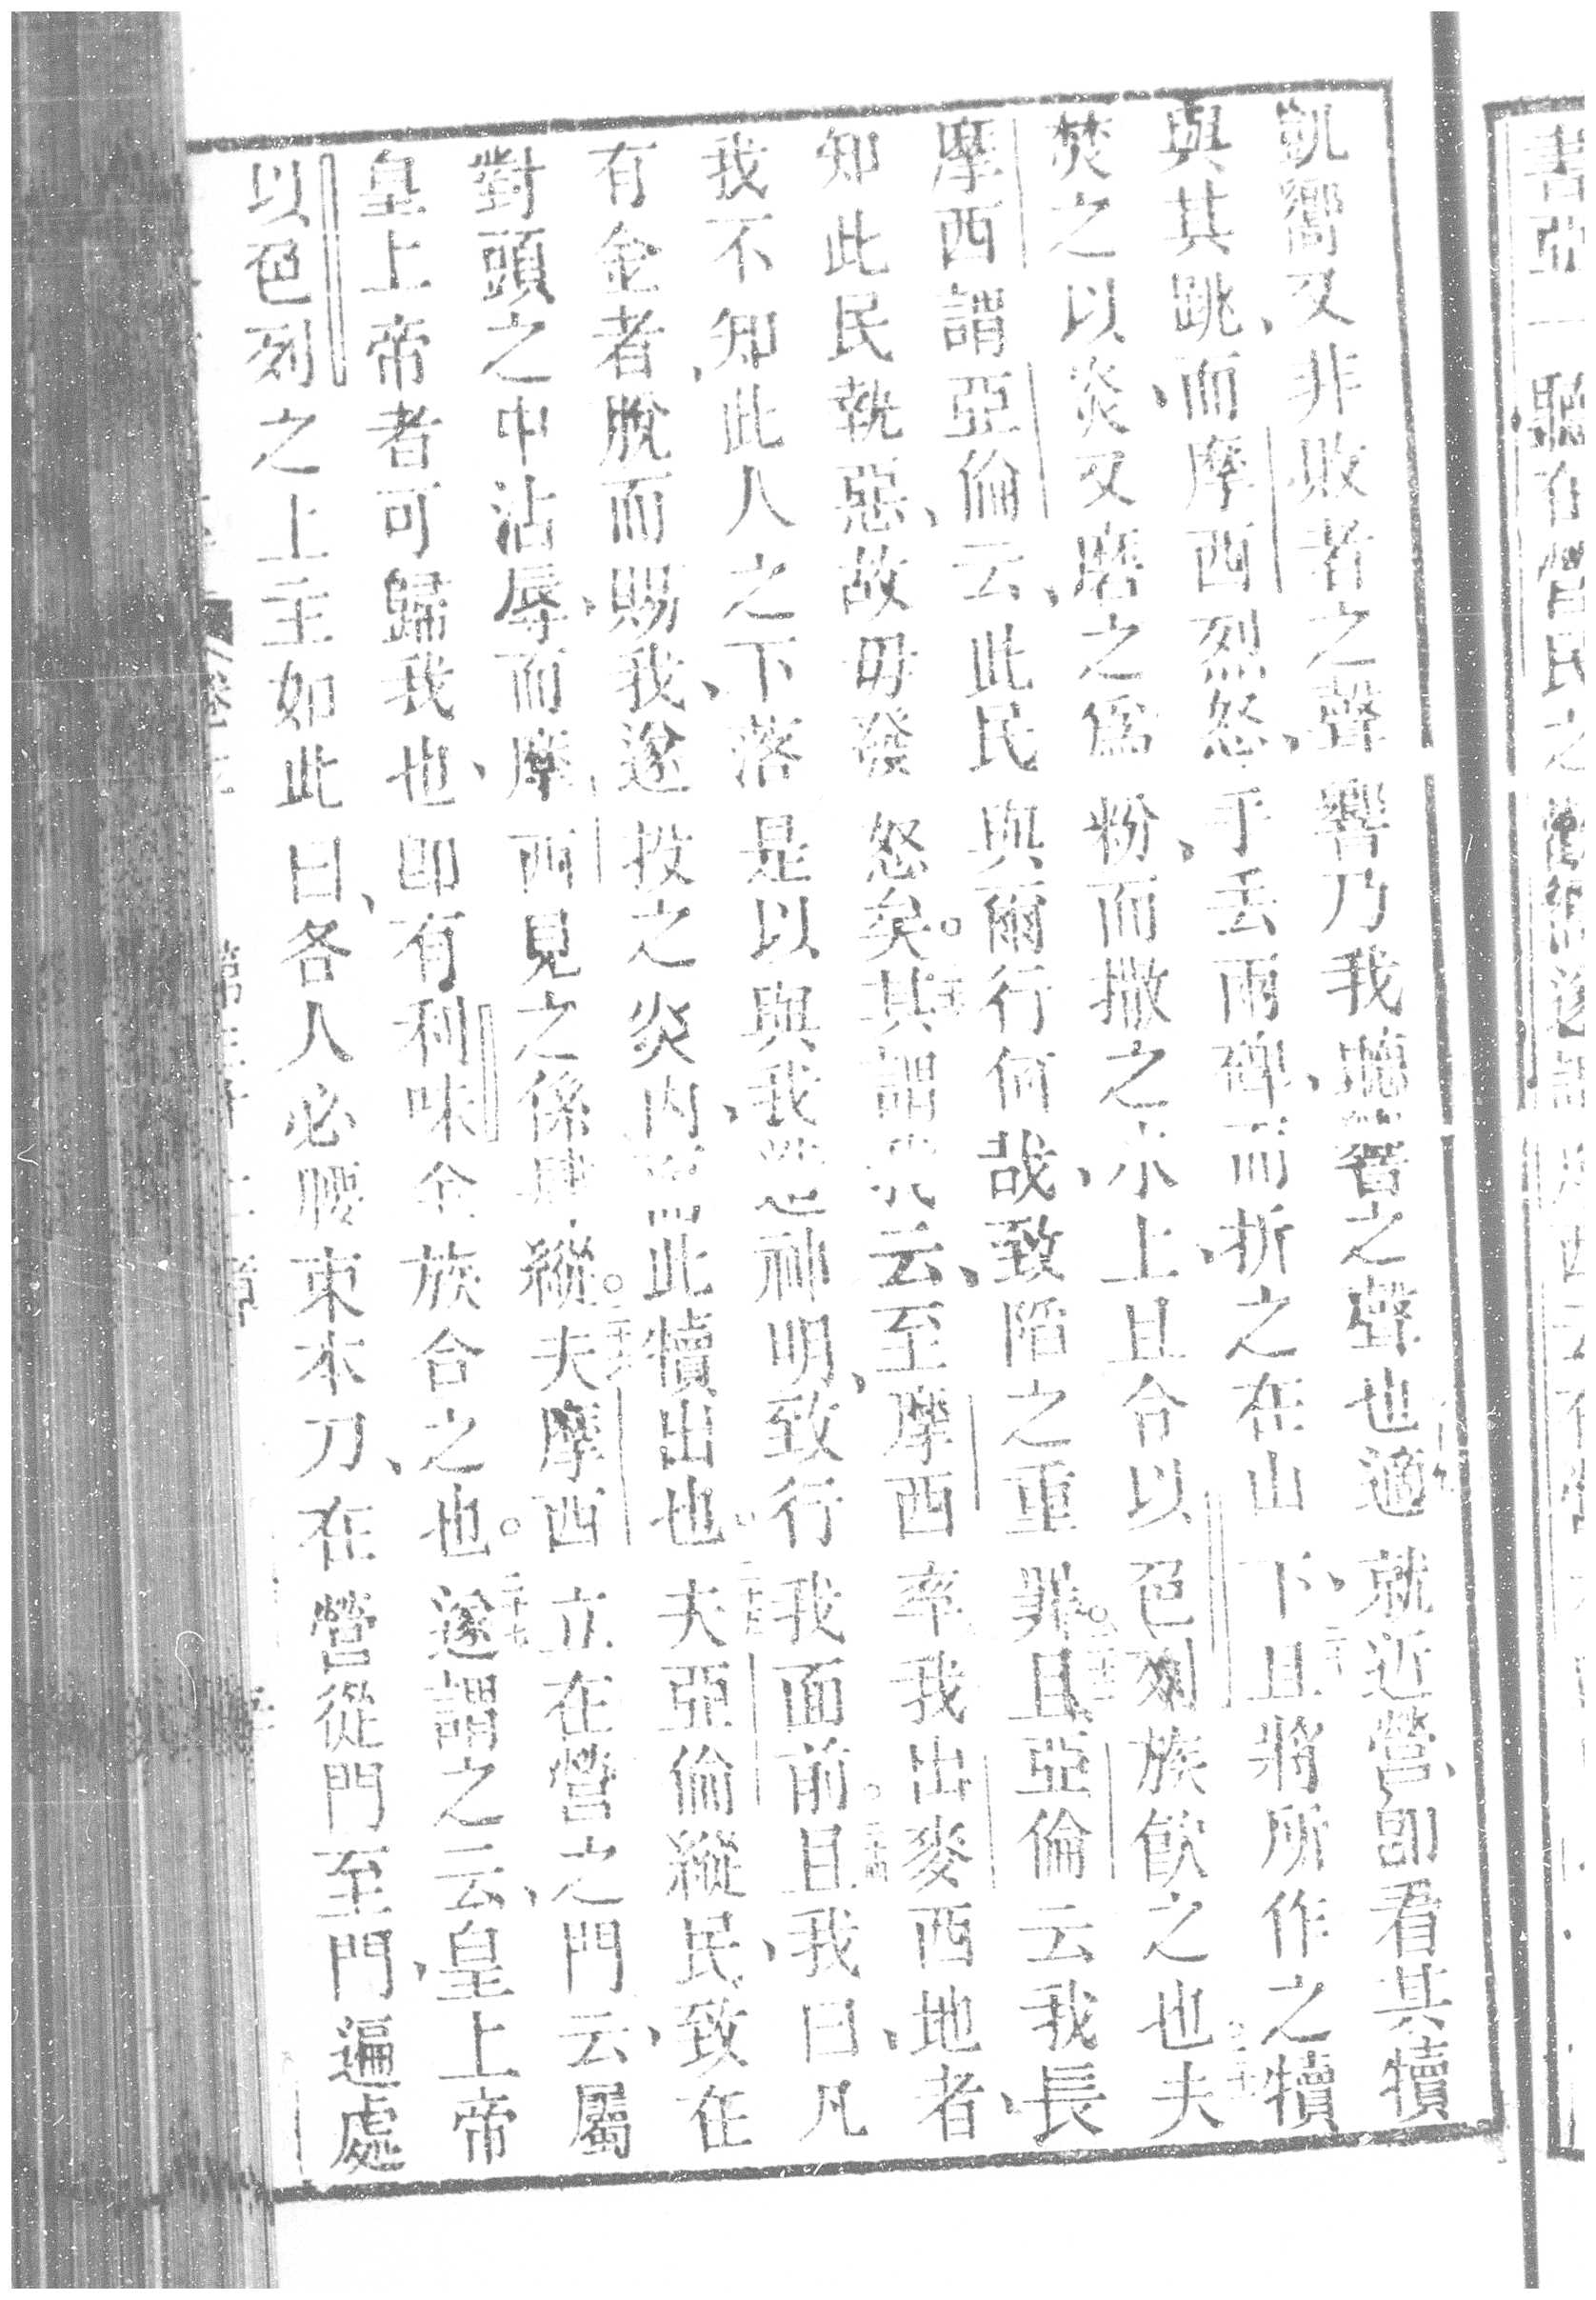 凱響又非敗者之聲響乃我聽響之聲也適就近營、卽看其犢
與其跳、而摩西烈怒、手丢兩碑、而折之在山下、且將所作之犢
焚之以炎、又磨之爲粉、而撒之水上、且令以色列族飮之也夫
摩西謂亞倫云、此民與爾行何哉、致陷之重罪。且亞倫云我長
知此民執惡、故毋發怒矣。其謂我云、至摩西率我出麥西地者、
我不知此人之下落是以與我造神明、致行我面前。且我曰、凡
有金者、脫而賜我、遂投之炎內而此犢出也。夫亞倫縱民、致在
對頭之中沾辱、而摩西見之係肆縱。夫摩西立在營之門云、屬
皇上帝者可歸我也、卽有利味全族合之也。遂謂之云、皇上帝
以色列之上主如此曰、各人必腰束本刀、在營從門至門、遍處